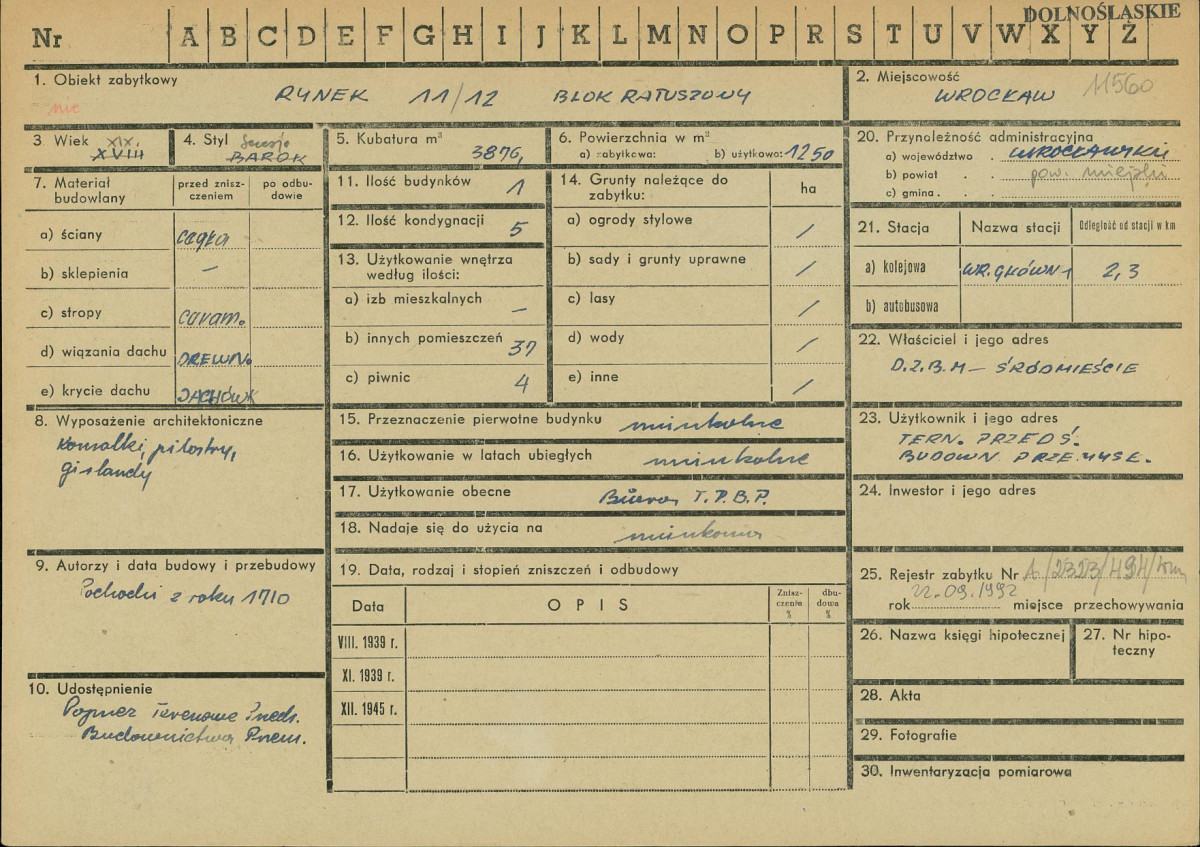 DOLNOŚLĄSKIE
Nr A B C D E F G H I J K L M N O P R S T U V W X Y Z
1. Obiekt zabytkowy
nie
RYNEK 11/12 BLOK RATUSZOWY
2. Miejscowość 11560
WROCŁAW
3 Wiek XIX.
XVIII
4. Styl
BAROK
5. Kubatura m³
3876,
6. Powierzchnia w m²
a) zabytkowa: b) użytkowa: 1250
7. Materiał budowlany
przed zniszczeniem
po odbudowie
a) ściany cegła
b) sklepienia —
c) stropy ceram.
d) wiązania dachu DREWN.
e) krycie dachu DACHÓWK
8. Wyposażenie architektoniczne
Konsolki, pilastry,
girlandy
9. Autorzy i data budowy i przebudowy
Pochodzi z roku 1710
10. Udostępnienie
Poprzez Terenowe Przeds.
Budownictwa Przem.
11. Ilość budynków 1
12. Ilość kondygnacji 5
13. Użytkowanie wnętrza
według ilości:
a) izb mieszkalnych —
b) innych pomieszczeń 37
c) piwnic 4
14. Grunty należące do
zabytku:
ha
a) ogrody stylowe /
b) sady i grunty uprawne /
c) lasy /
d) wody /
e) inne /
15. Przeznaczenie pierwotne budynku mieszkalne
16. Użytkowanie w latach ubiegłych mieszkalne
17. Użytkowanie obecne Biura T.P.B.P.
18. Nadaje się do użycia na
19. Data, rodzaj i stopień zniszczeń i odbudowy
Data
OPIS
Zniszczenie %
dbudowa %
VIII. 1939 r.
XI. 1939 r.
XII. 1945 r.
20. Przynależność administracyjna
a) województwo . WROCŁAWSKIE
b) powiat . . pow. miejski
c) gmina . . .
21. Stacja
Nazwa stacji
Odległość od stacji w km
a) kolejowa WR. GŁÓWNY 2,3
b) autobusowa
22. Właściciel i jego adres
D.Z.B.M — ŚRÓDMIEŚCIE
23. Użytkownik i jego adres
TERN. PRZEDŚ.
BUDOWN PRZEMYSŁ.
24. Inwestor i jego adres
25. Rejestr zabytku Nr A/2323/494/Wm
22.09.1992
rok miejsce przechowywania
26. Nazwa księgi hipotecznej
27. Nr hipoteczny
28. Akta
29. Fotografie
30. Inwentaryzacja pomiarowa